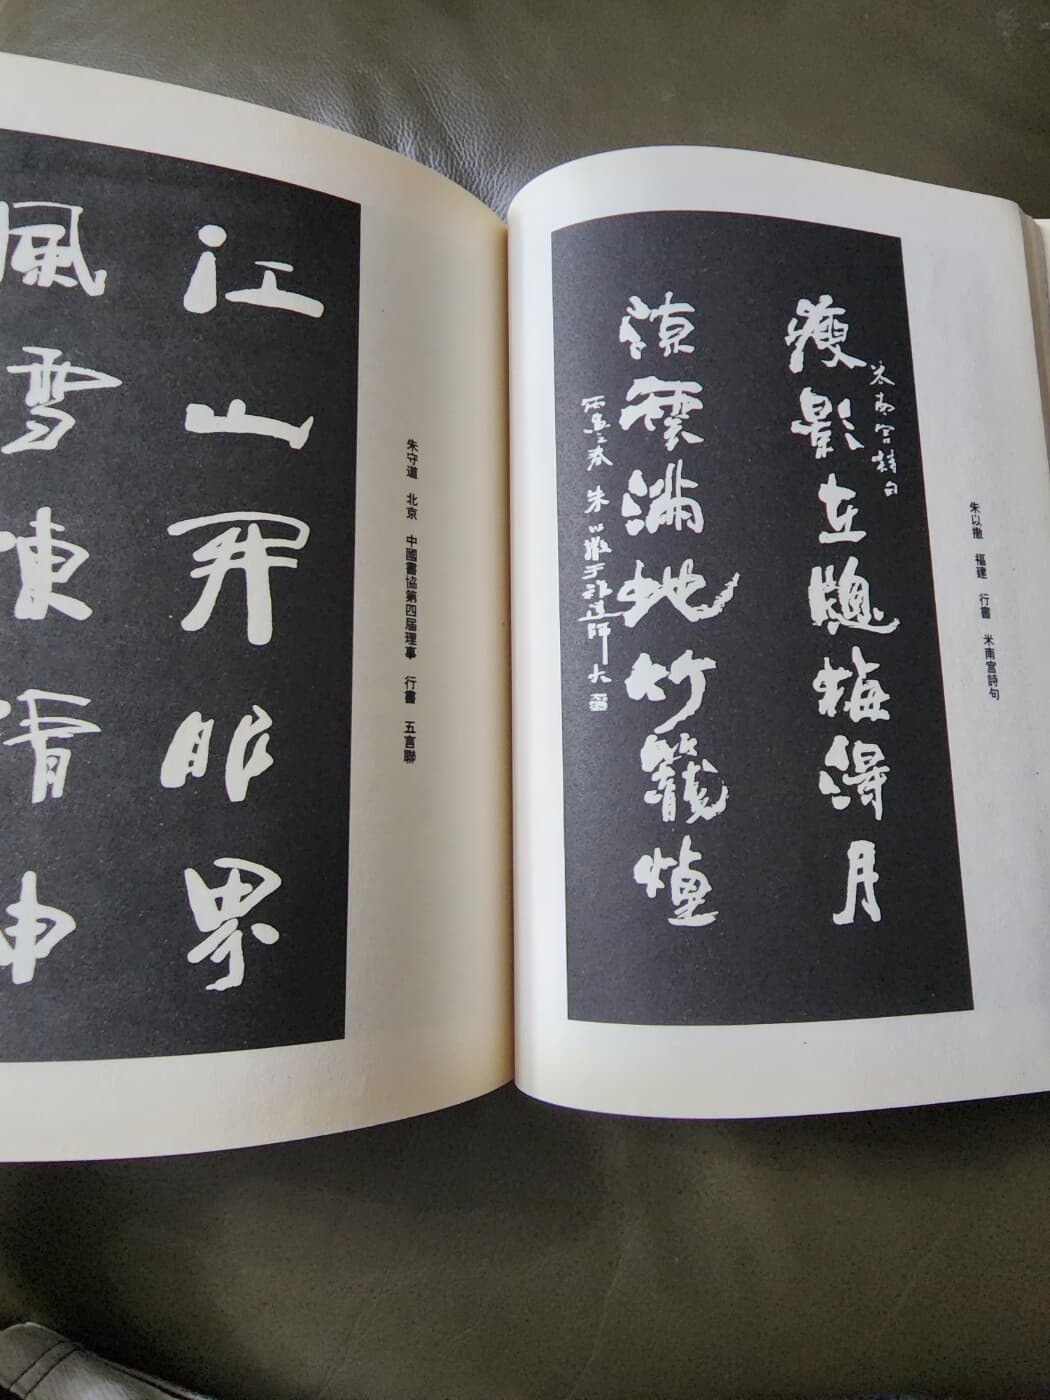 朱以撒 福建 行書 米南宮詩句
米南宮詩句
瘦影在牕梅得月
涼雲滿地竹籠煙
朱以撒于福建師大
朱守道 北京 中國書協第四屆理事 行書 五言聯
江山開眼界
風雪